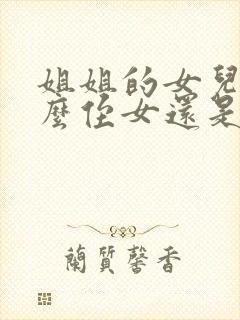 姐姐的女兒
麼侄女還是
蘭質馨香